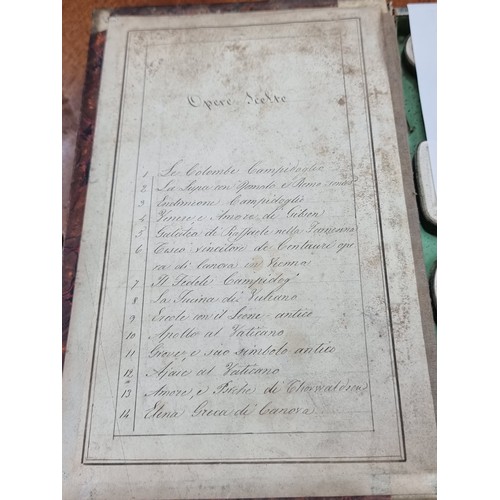 Opere Scelte
1 Le Colombe Campidoglio
2 La Lupa con Romolo e Remo
3 Endimione Campidoglio
4 Venere, e Amore, di Gibson
5 Galatea di Raffaele nella Farnesina
6 Teseo vincitore de Centauri ope
ra di Canova in Vienna
7 Il Fedele Campidog
8 La Fucina di Vulcano
9 Ercole con il Leone antico
10 Apollo al Vaticano
11 Giove, e suo simbolo antico
12 Ajace al Vaticano
13 Amore, e Psiche di Thorwaldsen
14 Elena Greca di Canova